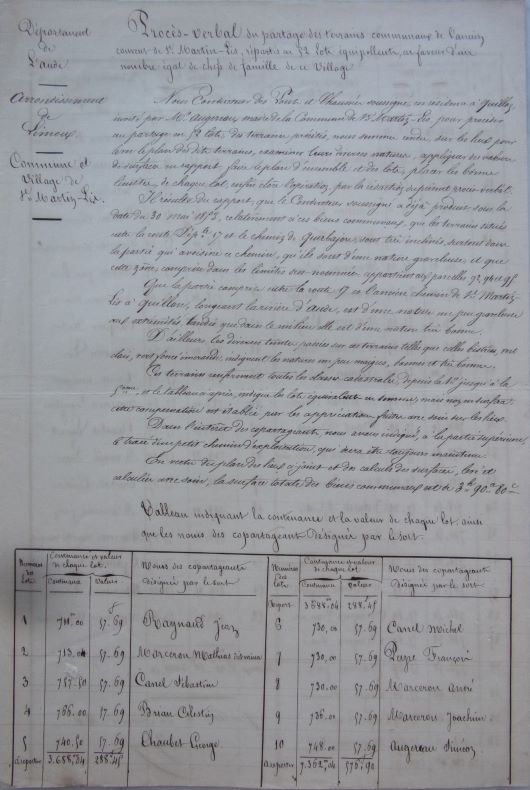 Département
de
L'aude
Arrondissement
de
Limoux
Commune et
Village de
St Martin-Lis.
Procès-verbal du partage des terrains communaux de l'ancien
couvent de St Martin-Lis, répartis en 52 lots équipollents, en faveur d'un
nombre égal de chefs de famille de ce Village
Nous Conducteur des Ponts et Chaussées soussigné, en résidence à Quillan,
invité par Mr Augereau, maire de la Commune de St Martin-Lis, pour procéder
au partage en 52 lots, des terrains précités, nous sommes rendu sur les lieux pour
lever le plan des dits terrains, examiner leurs diverses natures, appliquer des valeurs
de surface en rapport, faire le plan d'ensemble et des lots, placer les bornes
limites de chaque lot, enfin clore l'opération par la rédaction du présent procès-verbal.
Il résulte du rapport, que le Conducteur soussigné a déjà produit, sous la
date du 30 mai 1873, relativement à ces biens communaux, que les terrains situés
entre la route Dép.le 17 et le chemin de Quirbajou, sont très inclinés, surtout dans
la partie qui avoisine ce chemin, qu'ils sont d'une nature graveleuse, et que
cette zône, comprise dans les limites susnommées appartient aux parcelles 92, 94 et 95
Que la partie comprise entre la route 17 et l'ancien chemin de St Martin-
Lis à Quillan, longeant la rivière d'Aude, est d'une nature un peu graveleuse
aux extrémités tandis que dans le milieu elle est d'une nature très bonne.
D'ailleurs, les diverses teintes passées sur ces terrains telles que celles bistrées, vert
clair, vert foncé indiquent les natures un peu maigres, bonnes et très bonnes.
Ces terrains renferment toutes les classes cadastrales, depuis la 1re jusqu'à la
5ème, et le tableau ci-après, indique les lots équivalents en sommes, mais non en surface
cette compensation est établie par les appréciations faites avec soin sur les lieux.
Dans l'intérêt des copartageants, nous avons indiqué, à la partie supérieure,
le tracé d'un petit chemin d'exploitation, qui devra être toujours maintenu.
En vertu du plan des lieux ci-joint et des calculs des surfaces, levé et
calculés avec soin, la surface totale des biens communaux est de 3h 90a 80c
Tableau indiquant la contenance et la valeur de chaque lot, ainsi
que les noms des copartageants désignés par le sort.
Numéros des lots | Contenance et valeurs de chaque lot. | Noms des copartageants désignés par le sort
Contenance | Valeurs
1 | 57.69 | Raynaud Jean
2 | 713.04 | 57.69 | Marceron Mathias
3 | 57.69 | Carrel Sébastien
4 | 766.00 | 57.69 | Brian Célestin
5 | 740.50 | 57.69 | Chaubet George
à reporter | 3.688.04 | 288.45
Numéros des lots | Contenance et valeurs de chaque lot. | Noms des copartageants désignés par le sort
Contenance | Valeurs
Report | 3688.04 | 288.45
6 | 730.00 | 57.69 | Carrel Michel
7 | 730.00 | 57.69 | François
8 | 730.00 | 57.69 | Marceron André
9 | 736.00 | 57.69 | Marceron Joachim
10 | 748.00 | 57.69 | Augereau Siméon
à reporter | 7.362.04 | 576.90